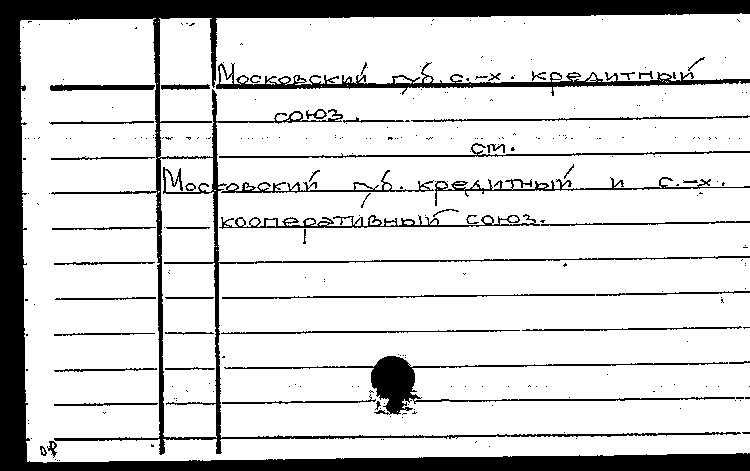 Московский губ. с.-х. кредитный
союз.
см.
Московский губ. кредитный и с.-х.
кооперативный союз.